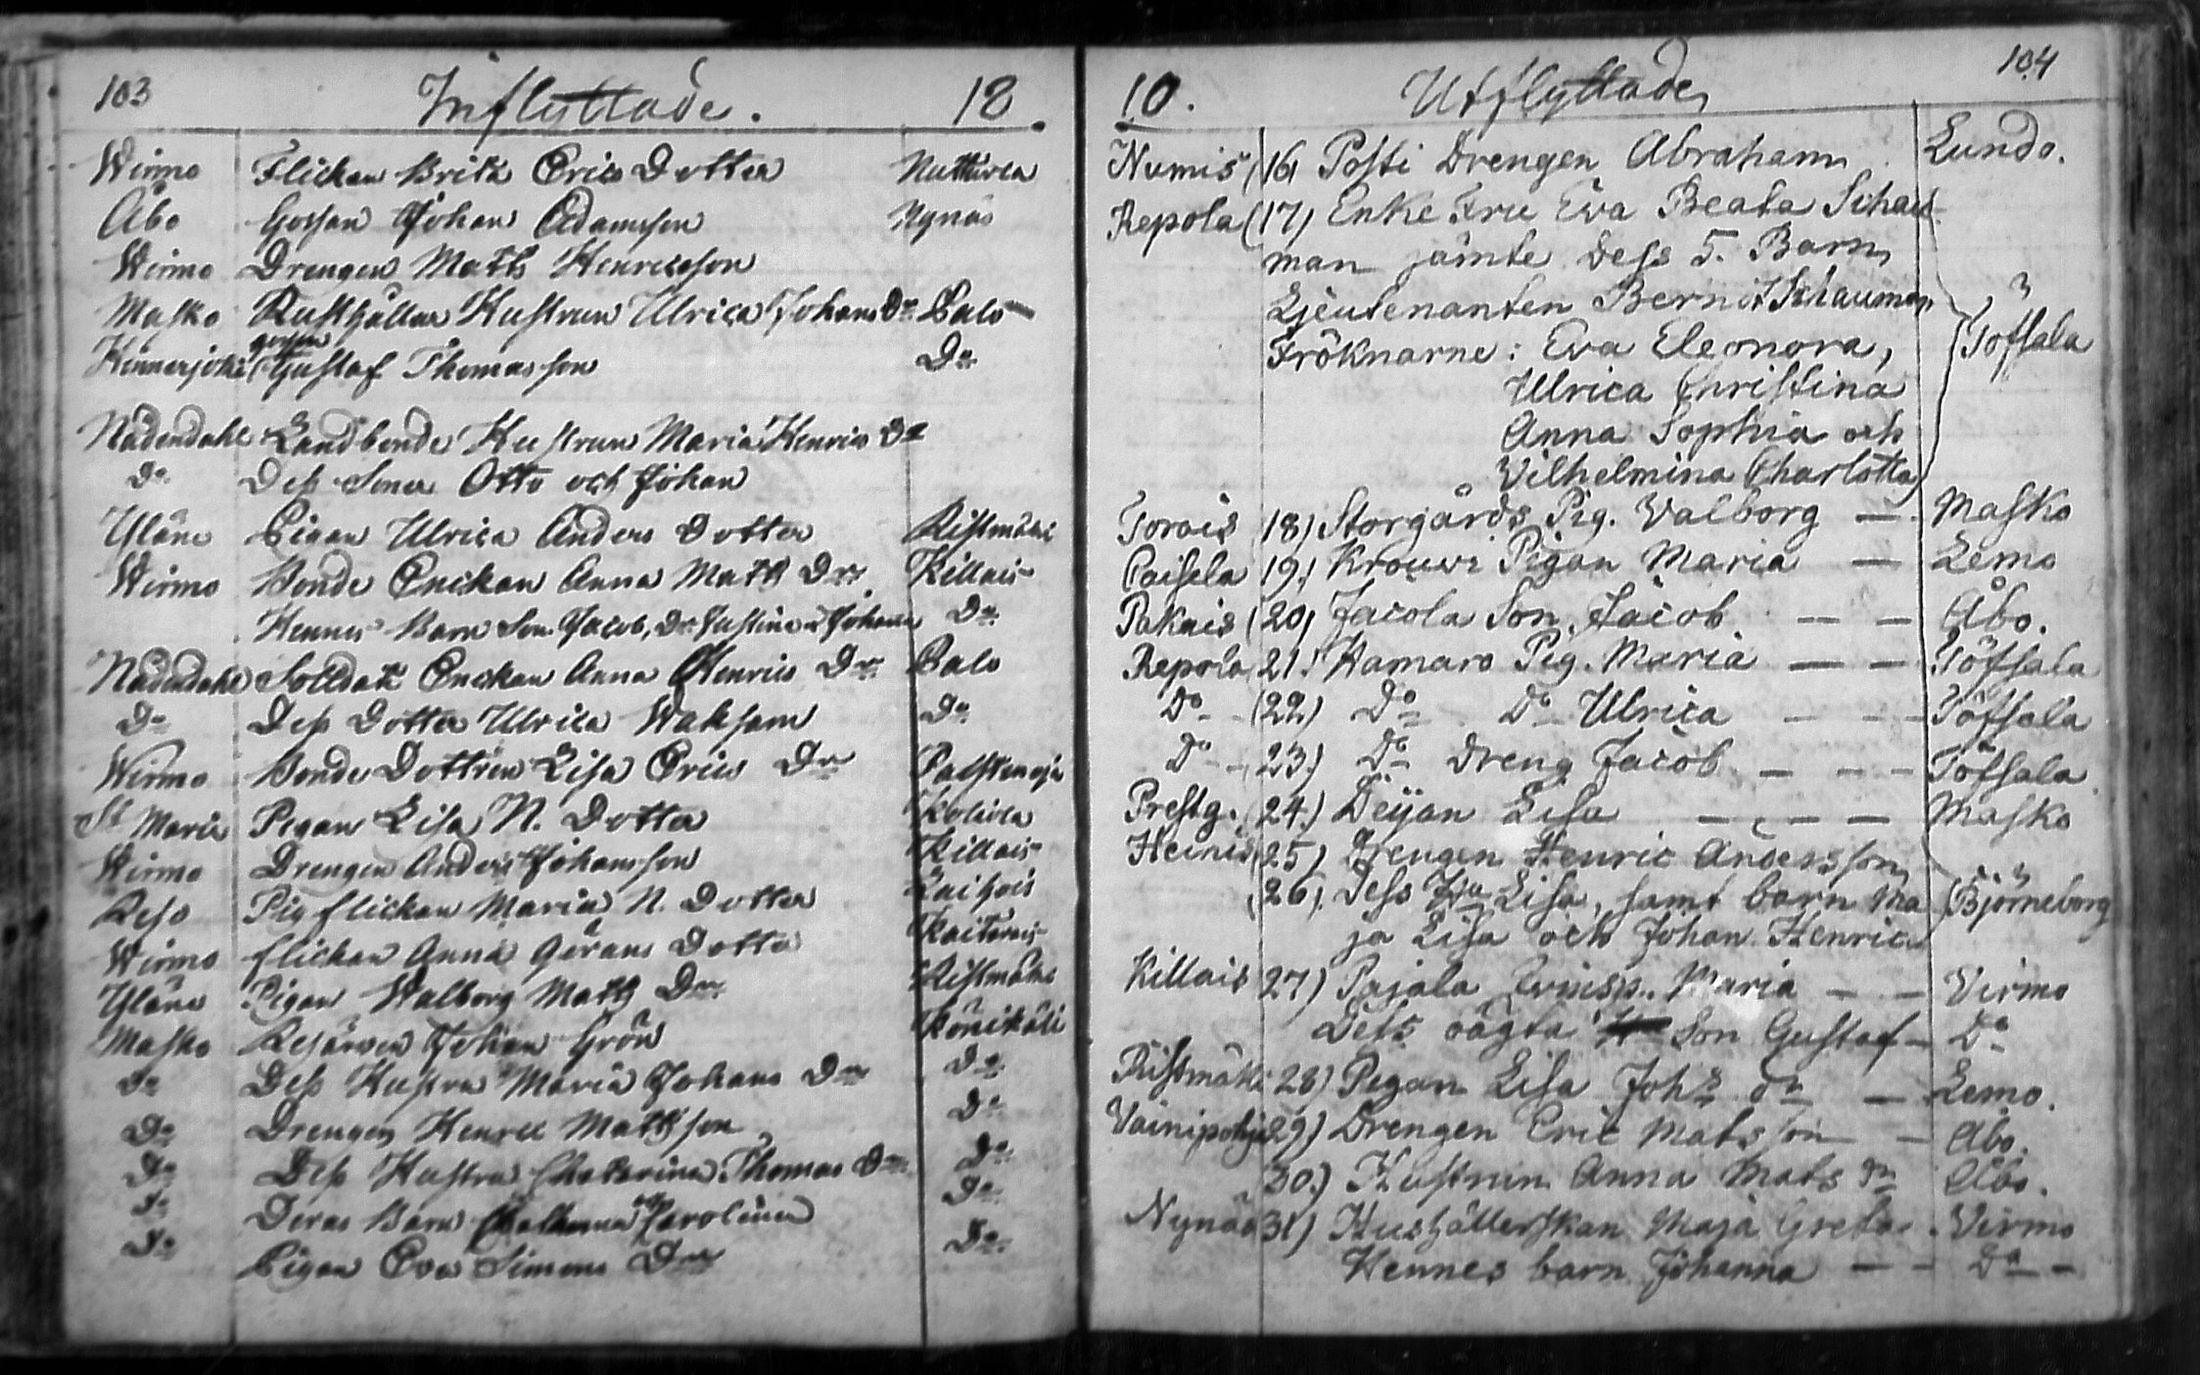 103 Inflyttade. 18
Wirmo Flickan Brita Erics Dotter Nutturla
Åbo Gossan Johan Adamsson Nynäs
Wirmo Drengen Matts Henricsson
Masko Rusthållar Hustrun Ulrica Johans Dr Palo
gossen
Kinnerjoki Gustaf Thomasson Do
Nådendahl Landbonde Hustrun Maria Henrics Dr
Do Dess Söner Otto och Johan
Yläne Pigan Ulrica Anders Dotter Ristmäki
Wirmo Bonde Enckan Anna Matts Dr Killais
Hennes Barn Son Jacob, Dr Justina Johanna Do
Nådendahl Solldatz Enckan Anna Henrics Dr Palo
Do Dess Dotter Ulrica Waksam Do
Wirmo Bonde Dottren Lisa Erics Dr
St Marie Pigan Lisa N. Dotter Kolivla
Wirmo Drengen Anders Johansson Killais
Reso Pigflickan Maria N. Dotter
Wirmo flickan Anna Görans Dotter Kaitarais
Yläne Pigan Walborg Matts Dr Ristmäki
Masko Johan Grön Könikäli
Do Dess Hustru Maria Johans Dr Do
Do Drengen Henric Mattsson Do
Do Dess Hustru Chatarina Thomas Dr Do
Do Deras Barn Carolina Do
Do Pigan Eva Simons Dr Do
10. Utflyttade 104
Numis (16) Posti Drengen Abraham Lundo.
Repola (17) Enke Fru Eva Beata Schau-
man jämte dess 5. Barn,
Lieutenanten Bernd Schauman
Fröknarne: Eva Eleonora, Töfsala
Ulrica Christina
Anna Sophia och
Vilhelmina Charlotta
Torais 18) Storgårds Pig. Valborg — Masko
Paisela 19) Krouvi Pigan Maria — Lemo
Pakais (20) Jacola Son Jacob — — Åbo.
Repola 21.) Hamaro Pig. Maria — — Töfsala
Do - (22) Do Do Ulrica — — - Töfsala
Do - 23.) Do Dreng Jacob — — - Töfsala
Prestg. (24.) Dejan Lisa — — — Masko
Heinis (25) Drengen Henric Andersson
(26). Dess Hu Lisa, samt barn Ma Björneborg
ja Lisa och Johan Henric
Killais 27) Pajala Maria — — Virmo
Dess oägta Son Gustaf — Do
Ristmäki 28) Pigan Lisa Johs dr — Lemo.
Vainipohja 29) Drengen Eric Matsson — Åbo.
30.) Hustrun Anna Mats dr Åbo.
Nynäs 31) Hushållerskan Maja Greta . Virmo
Hennes barn Johanna — - Do -